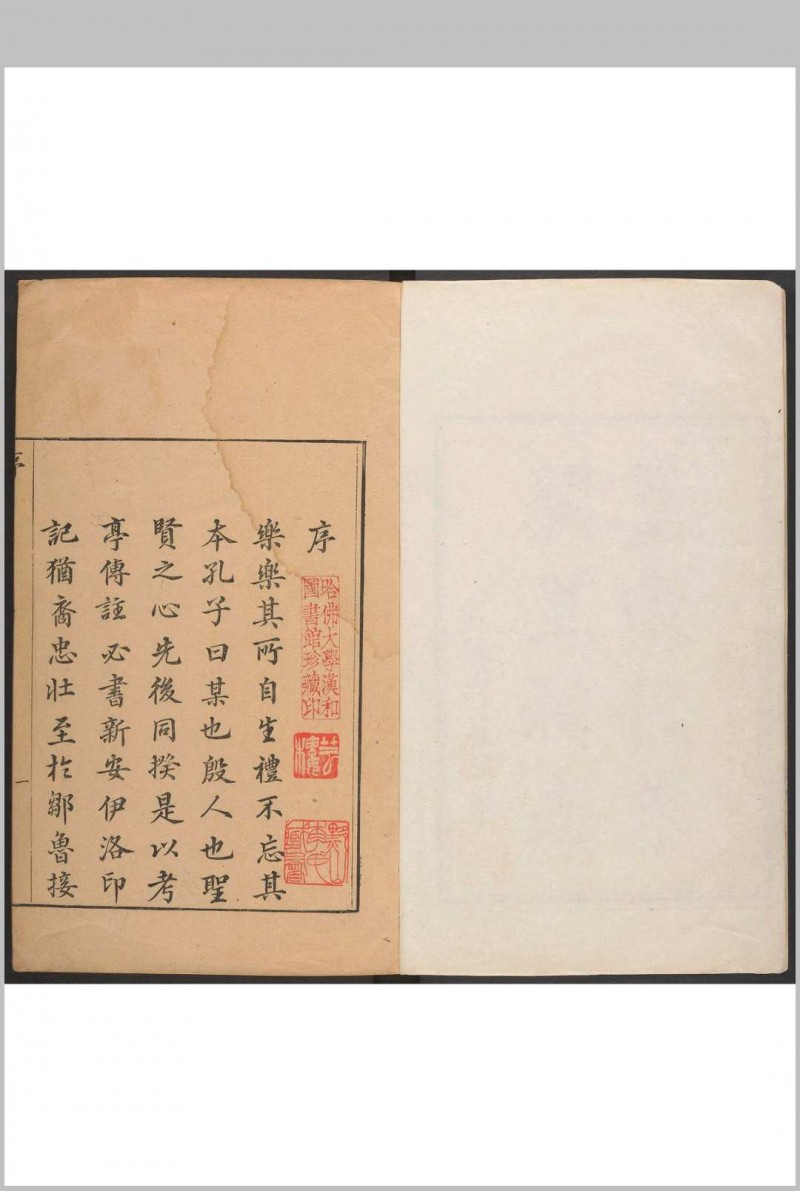 序
樂樂其所自生禮不忘其
本孔子曰某也殷人也聖
賢之心先後同揆是以考
亭傳註必書新安伊洛印
記猶裔忠壯至於鄒魯接
序
一
哈佛大學漢和
圖書館珍藏印